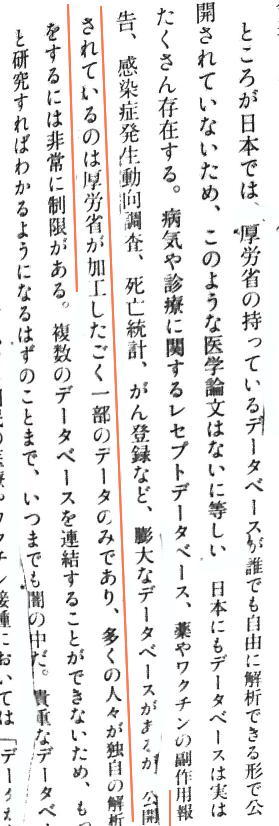 ところが日本では、厚労省の持っているデータベースが誰でも自由に解析できる形で公
開されていないため、このような医学論文はないに等しい 日本にもデータベースは実は
たくさん存在する。病気や診療に関するレセプトデータベース、薬やワクチンの副作用報
告、感染症発生動向調査、死亡統計、がん登録など、膨大なデータベースがあるが 公開
されているのは厚労省が加工したごく一部のデータのみであり、多くの人々が独自の解析
をするには非常に制限がある。複数のデータベースを連結することができないため、も
と研究すればわかるようになるはずのことまで、いつまでも闇の中だ。貴重なデータベ
ワクチン接種においては「データ